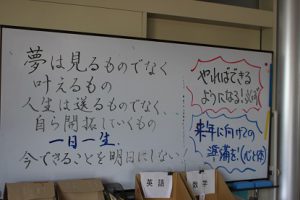 夢は見るものでなく
叶えるもの
人生は送るものでなく、
自ら開拓していくもの
一日一生
今できることを明日にしない!
やればできる
ようになる!必ず
来年に向けての
準備を!(心と体)
英語
数学